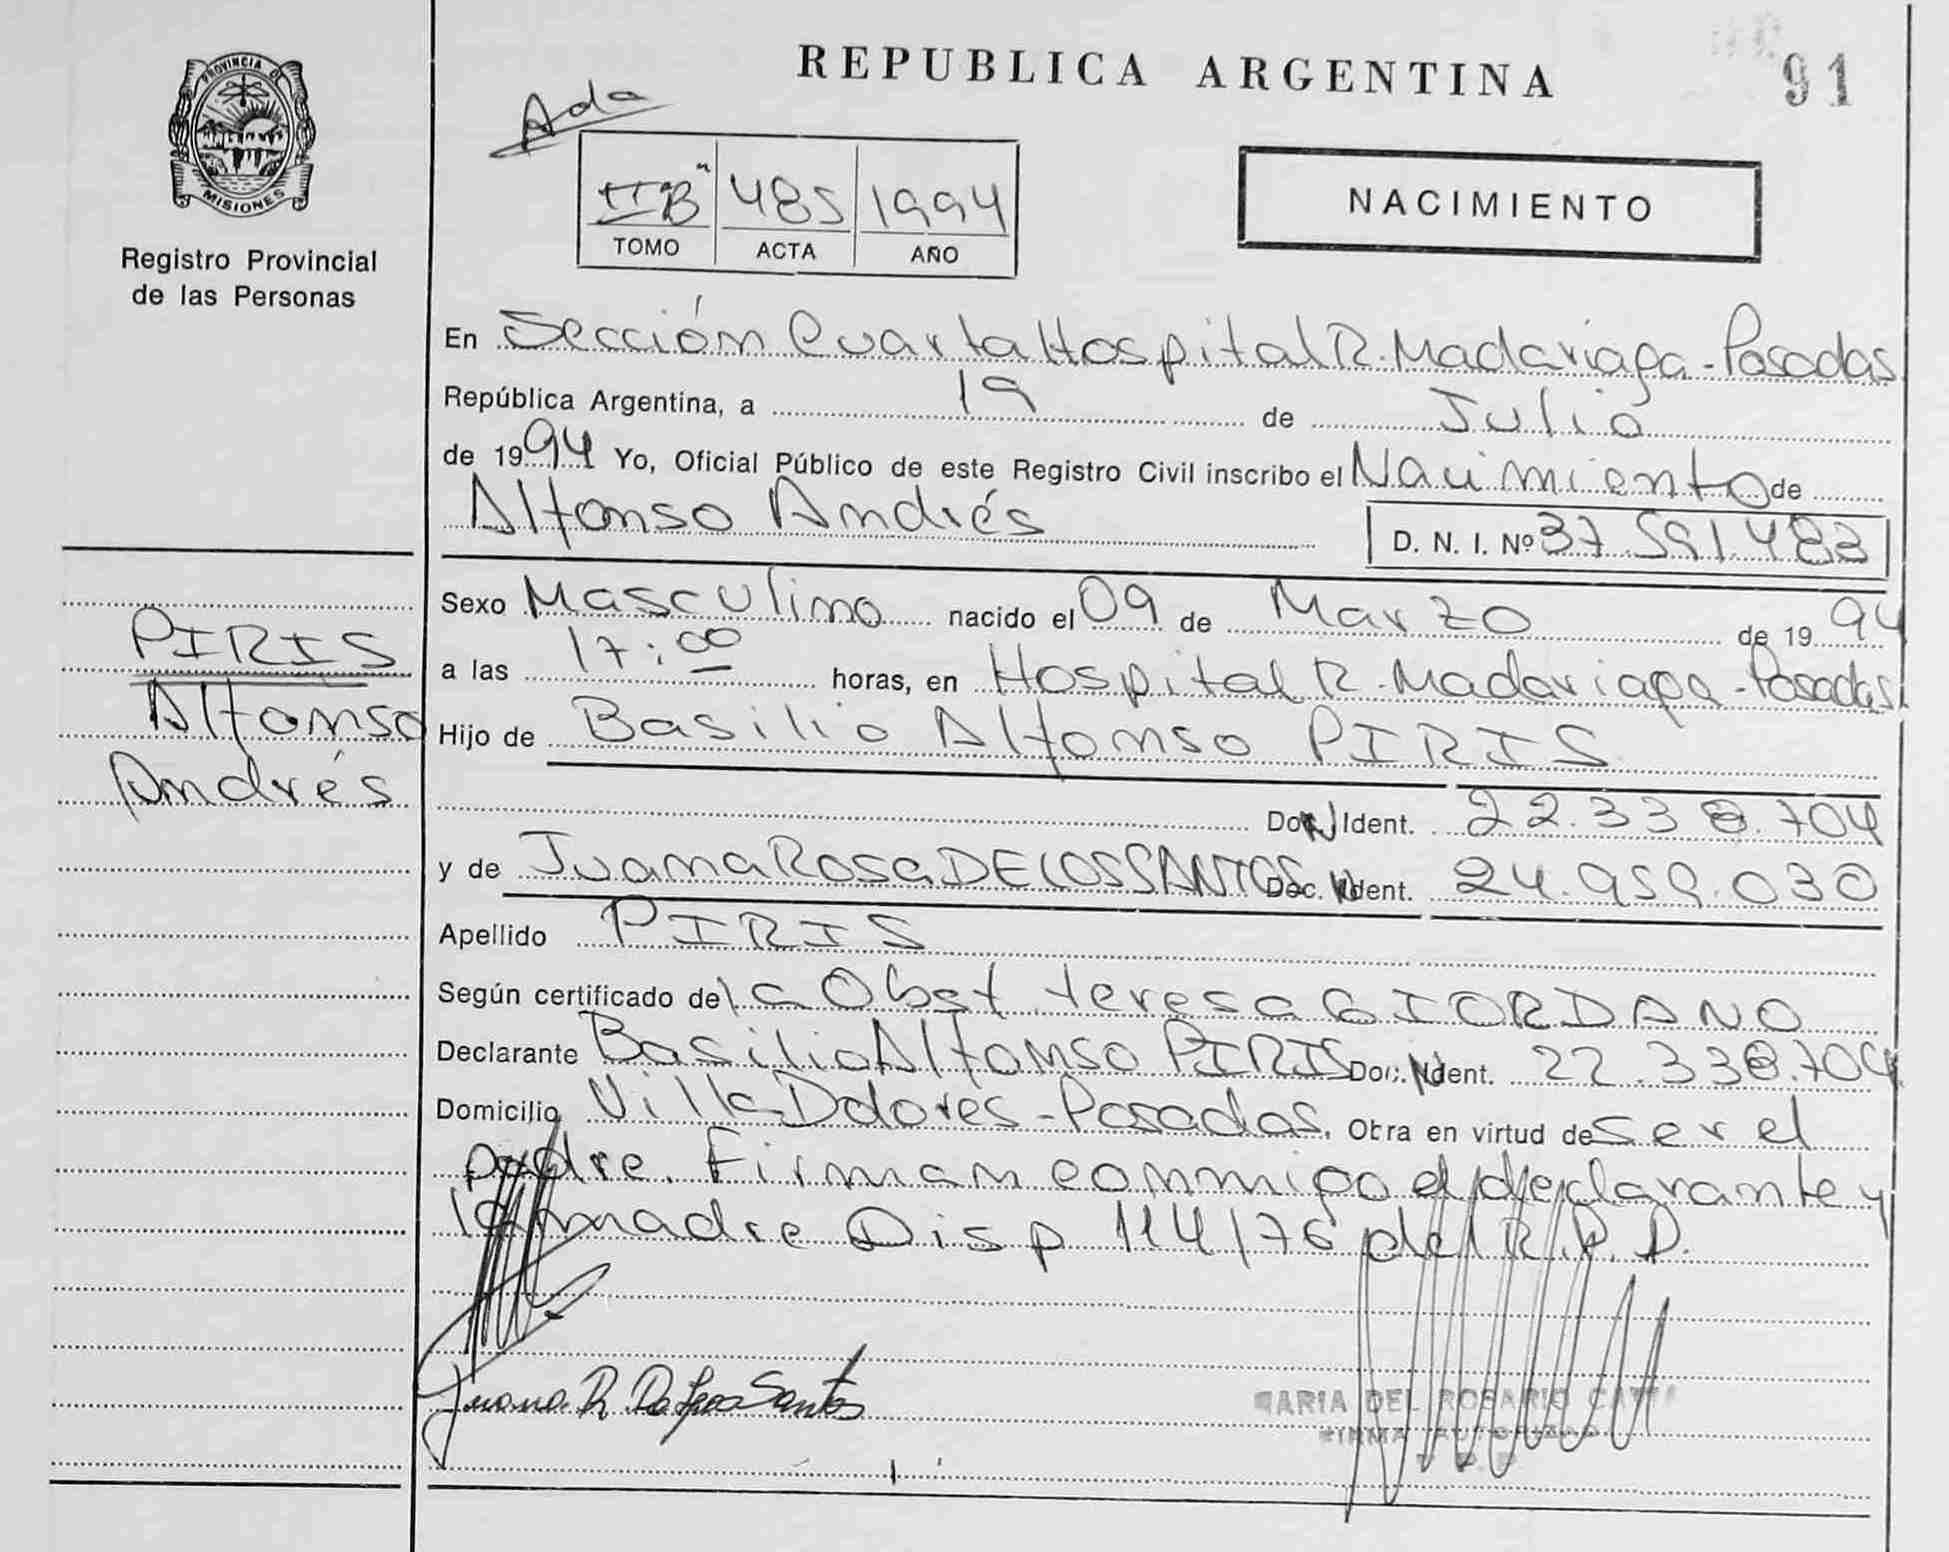 REPUBLICA ARGENTINA
91
PROVINCIA DE
MISIONES
Registro Provincial
de las Personas
Ada
II "B" 485 1994
TOMO ACTA AÑO
NACIMIENTO
En Sección Cuarta Hospital R. Madariaga - Posadas
República Argentina, a 19 de Julio
de 1994 Yo, Oficial Público de este Registro Civil inscribo el Nacimiento de
Alfonso Andrés D. N. I. Nº 37.591.483
Sexo Masculino nacido el 09 de Marzo de 1994
a las 17:00 horas, en Hospital R. Madariaga - Posadas
Hijo de Basilio Alfonso PIRIS
Doc. Ident. 22.338.704
y de Juana Rosa DE LOS SANTOS Doc. Ident. 24.959.030
Apellido PIRIS
Según certificado de la Obst Teresa GIORDANO
Declarante Basilio Alfonso PIRIS Doc. Ident. 22.338.704
Domicilio Villa Dolores - Posadas. Obra en virtud de ser el
padre. Firman conmigo el declarante y
la madre Disp 114/76 del R.P.P.
PIRIS
Alfonso
Andrés
Juana R. De los Santos
MARIA DEL ROSARIO
FIRMA AUTORIZADA